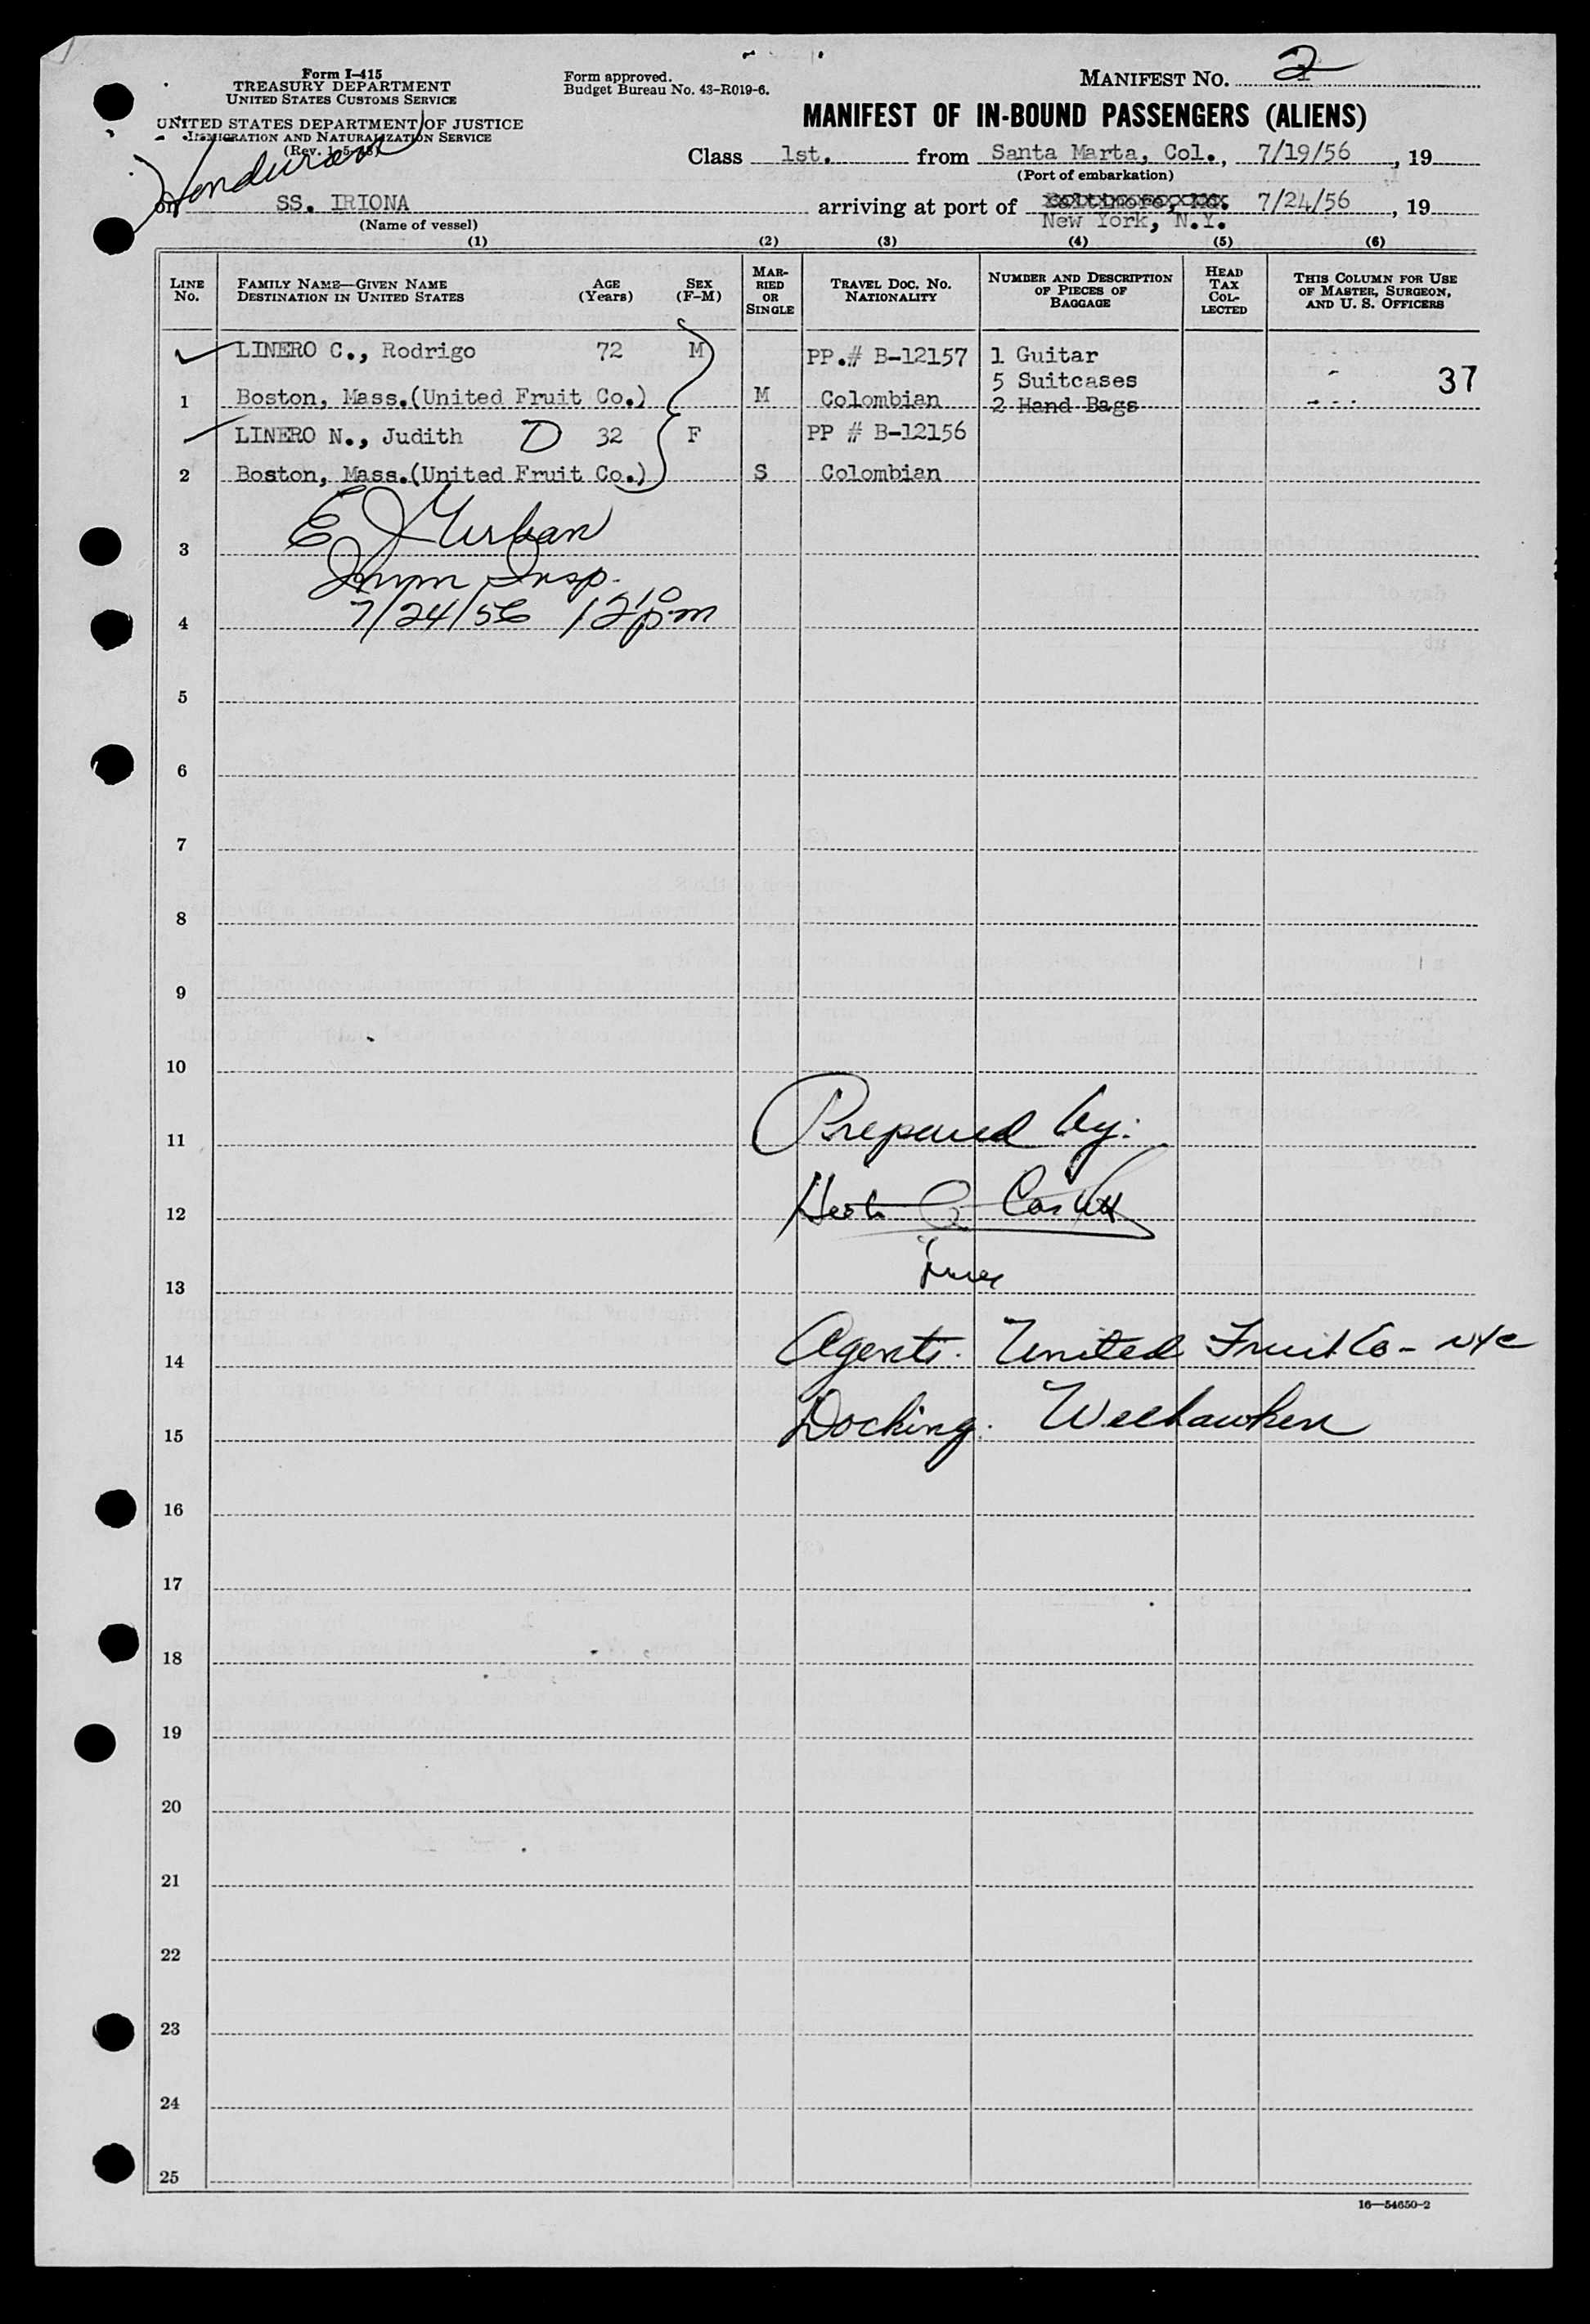 Form I-415
TREASURY DEPARTMENT
UNITED STATES CUSTOMS SERVICE
UNITED STATES DEPARTMENT OF JUSTICE
IMMIGRATION AND NATURALIZATION SERVICE
(Rev. 1-5-48)
Form approved.
Budget Bureau No. 43-R019-6.
MANIFEST NO. 2
MANIFEST OF IN-BOUND PASSENGERS (ALIENS)
Class 1st. from Santa Marta, Col., 7/19/56, 19
(Port of embarkation)
Honduran
on SS. IRIONA arriving at port of Baltimore, Md. 7/24/56, 19
New York, N.Y.
(Name of vessel)
(1) (2) (3) (4) (5) (6)
LINE No. FAMILY NAME—GIVEN NAME DESTINATION IN UNITED STATES AGE (Years) SEX (F-M) MARRIED OR SINGLE TRAVEL DOC. NO. NATIONALITY NUMBER AND DESCRIPTION OF PIECES OF BAGGAGE HEAD TAX COLLECTED THIS COLUMN FOR USE OF MASTER, SURGEON, AND U. S. OFFICERS
LINERO C., Rodrigo 72 M PP.# B-12157 1 Guitar
5 Suitcases 37
1 Boston, Mass.(United Fruit Co.) M Colombian 2 Hand Bags
LINERO N., Judith D 32 F PP # B-12156
2 Boston, Mass.(United Fruit Co.) S Colombian
E J Urban
3
Imm Insp.
4 7/24/56 12 10 pm
5
6
7
8
9
10
11 Prepared by:
12
13
14 Agents: United Fruit Co - NYC
15 Docking: Weehawken
16
17
18
19
20
21
22
23
24
25
16—54650-2